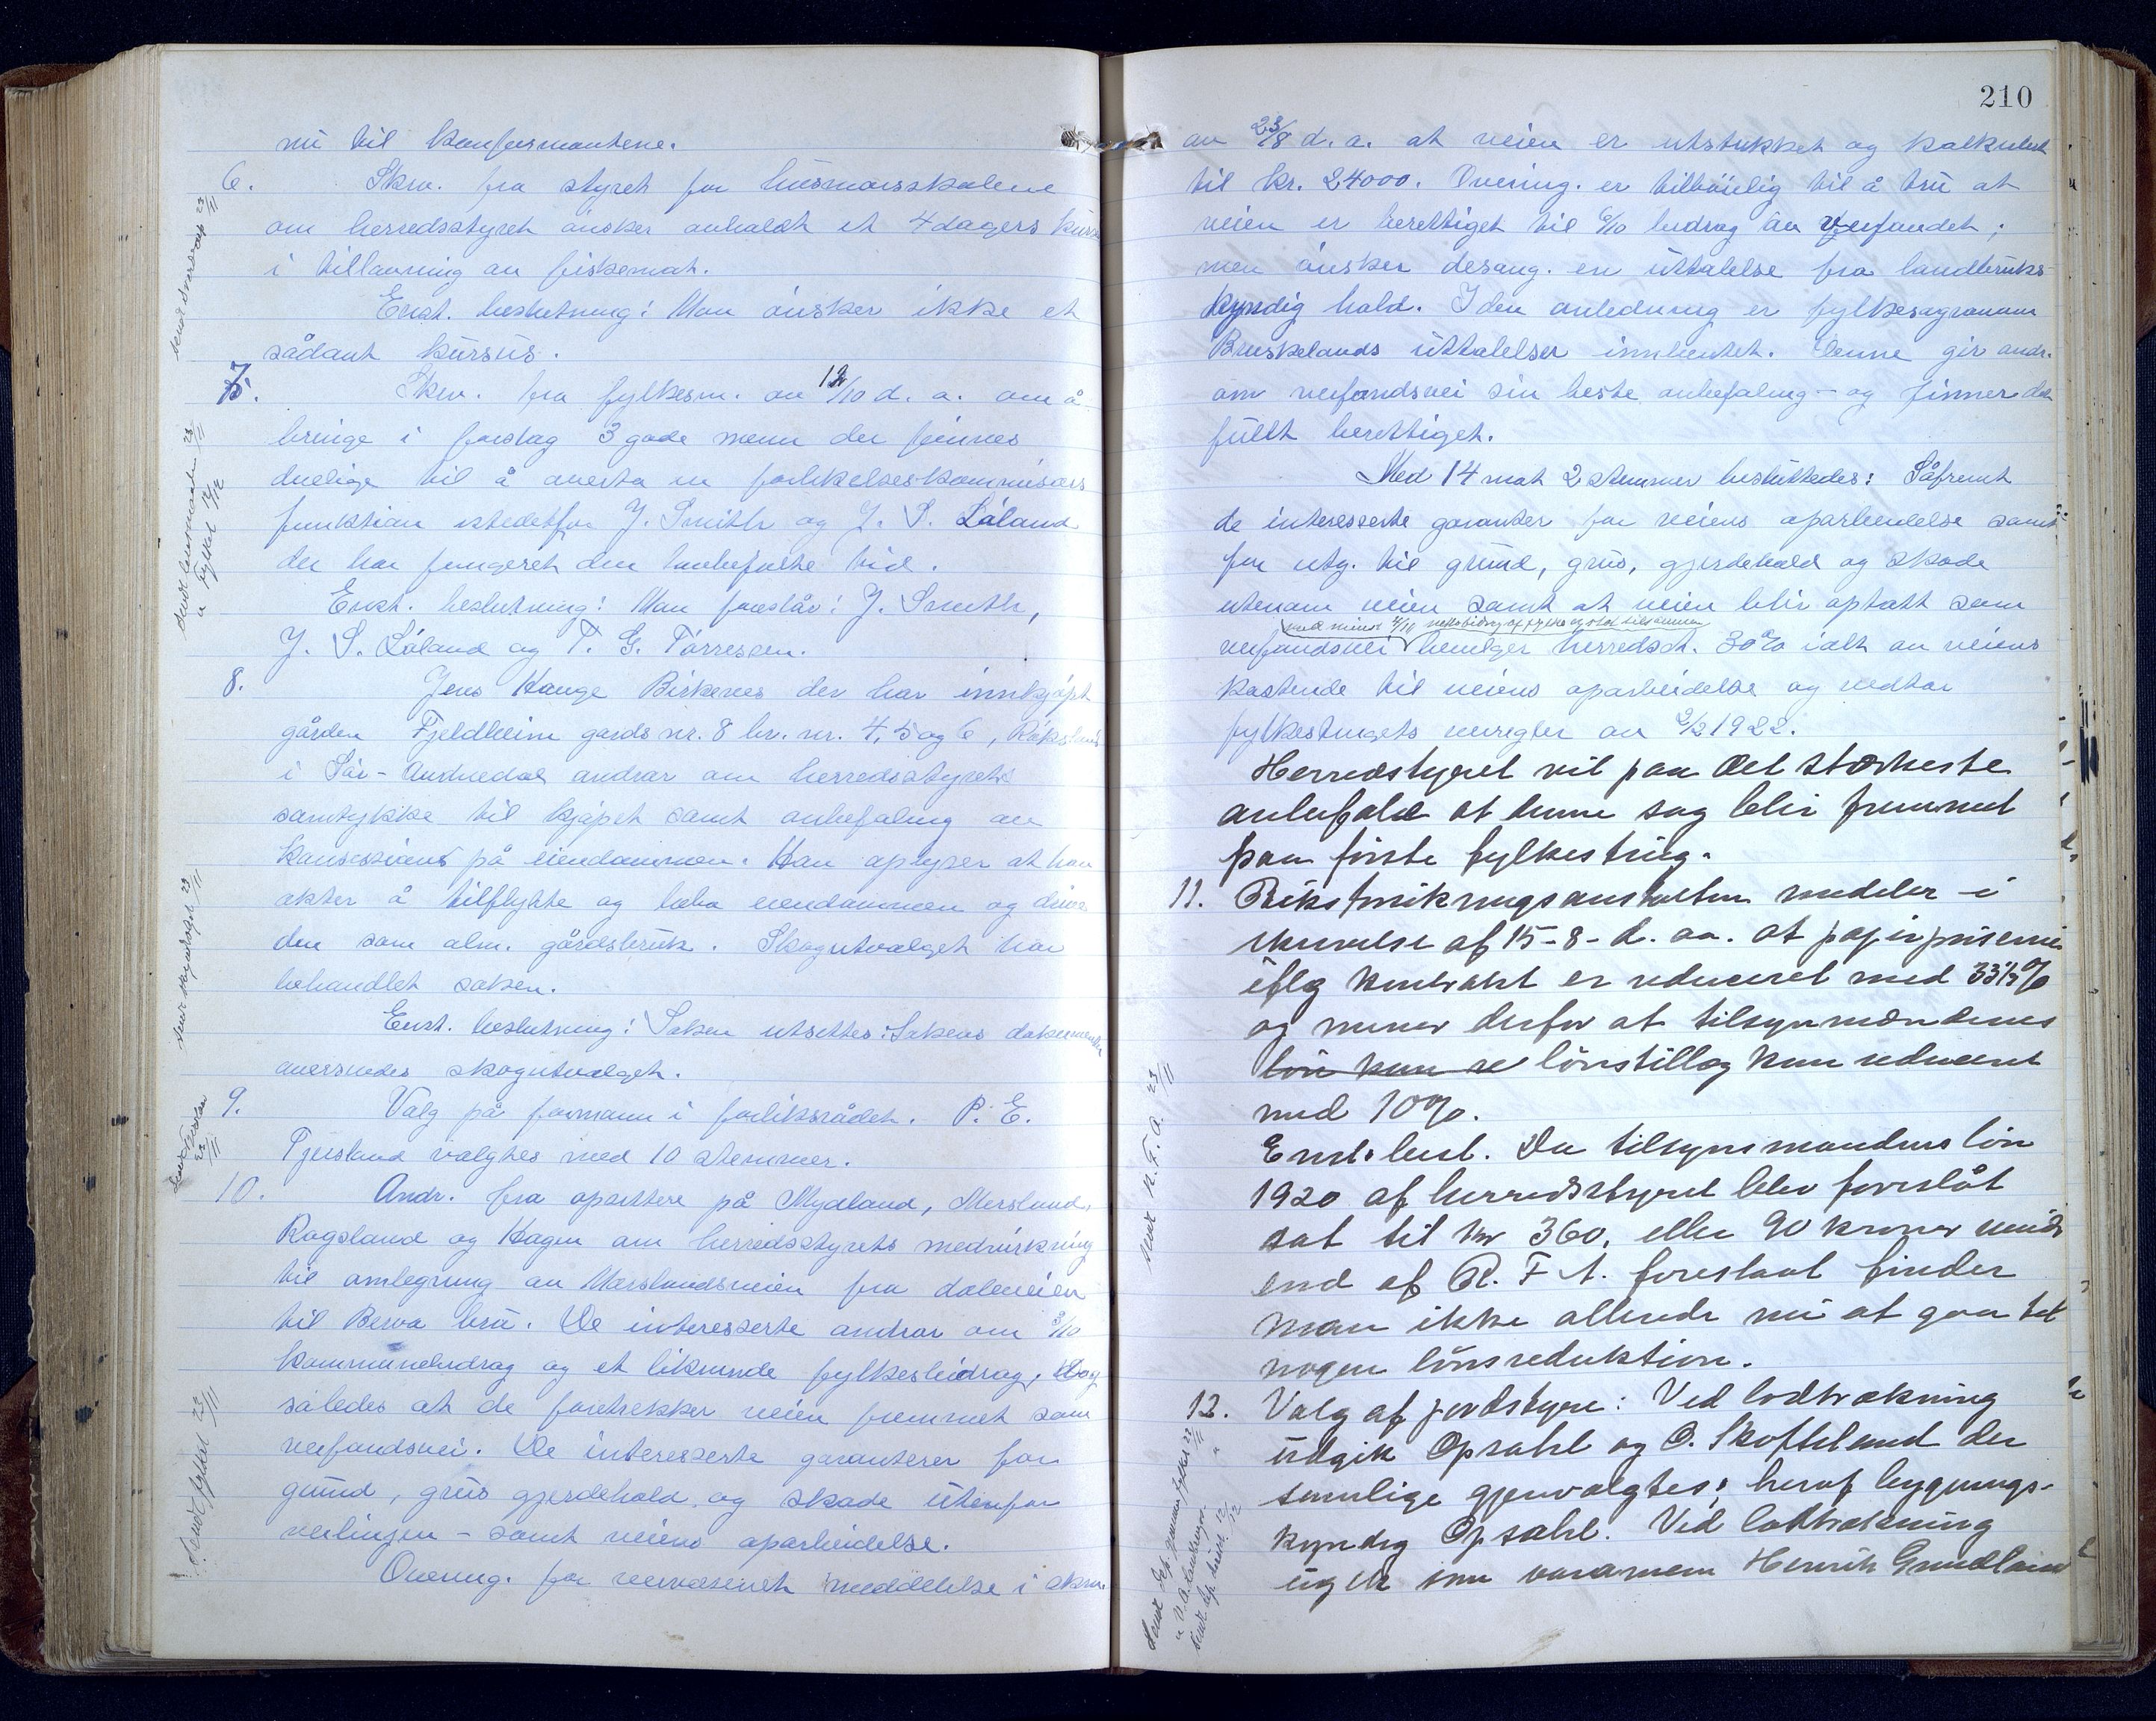 nu til konfirmantene.
6. Skriv. fra styret for husmorsskolene
om herredsstyret ønsker avholdt et 4 dagers kursus
i tillavning av fiskemat.
Enst. beslutning: Man ønsker ikke et
sådant kursus.
7. Skriv. fra fylkesm. av 12/10 d. a. om å
bringe i forslag 3 gode menn der finnes
duelige til å overta en forlikelseskommisærs
funktion istedetfor J. Smith og J. S. Låland
der har fungeret den lovbefalte tid.
Enst. beslutning: Man foreslår: J. Smith,
J. S. Låland og T. G. Tørressen.
8. Jens Hauge Birkenes der har innkjøpt
gården Fjeldheim gards nr. 8 br. nr. 4, 5 og 6,
i Sør-Audnedal andrar om herredsstyrets
samtykke til kjøpet samt anbefaling av
konsesjons på eiendommen. Han oplyser at han
akter å tilflytte og bebo eiendommen og drive
den som alm. gårdsbruk. Skogutvalget har
behandlet saken.
Enst. beslutning: Saken utsettes. Sakens dokumenter
oversendes skogutvalget.
9. Valg på formann i forliksrådet. P. E.
Tjersland valgtes med 10 stemmer.
10. Andr. fra opsittere på Mydland,
Rogsland og Hagen om herredsstyrets medvirkning
til omlegning av veien fra dalveien
til bru. De interesserte andrar om 3/10
kommunebidrag og et liknende fylkesbidrag, dog
således at de foretrekker veien fremmet som
veifondsvei. De interesserte garanterer for
grund, grus, gjerdehold og skade utenfor
veilinjen - samt veiens oparbeidelse.
Overing. for veivæsenet meddelelse i skriv.
sendt fylket 23/11
210
av 23/8 d. a. at veien er utstukket og kalkulert
til kr. 24000. Overing. er tilbøielig til å tru at
veien er berettiget til 6/10 bidrag av veifondet,
men ønsker desang. en uttalelse fra landbruks-
kyndig hold. I den anledning er fylkesagronom
Bruskelands uttalelser innhentet. Denne gir andr.
om veifondsvei sin beste anbefaling - og finner den
fullt berettiget.
Med 14 mot 2 stemmer besluttedes: Såfremt
de interesserte garanter for veiens oparbeidelse samt
for utg. til grund, grus, gjerdehold og skade
utenom veien samt at veien blir optatt som
veifondsvei bevilger herredsst. 30% ialt av veiens
kostende til veiens oparbeidelse og vedtar
fylkestingets veiregler av 2/2 1922.
Herredstyret vil paa det stærkeste
anbefale at denne sag blir fremmet
paa første fylkesting.
11. Riksforsikringsanstalten meddeler i
skrivelse af 15-8- d. aa. at papirpriserne
iflg kontrakt er reduceret med 33 1/3 %
og mener derfor at tilsynsmændenes
løn kan re lønstillæg kan reduceret
med 10%.
Enst. besl. Da tilsynsmandens løn
1920 af herredsstyret blev foreslåt
sat til kr 360, eller 90 kroner mindre
end af R. F. A. foreslaat finder
man ikke allerede nu at gaa til
nogen lønsreduktion.
sendt R. F. A. 23/11
12. Valg af jordstyre: Ved lodtrækning
udgik Opsahl og O. Skofteland der
samtlige gjenvalgtes, herof bygnings-
kyndig Opsahl. Ved lodtrækning
udgik som varamenn Henrik Grundland